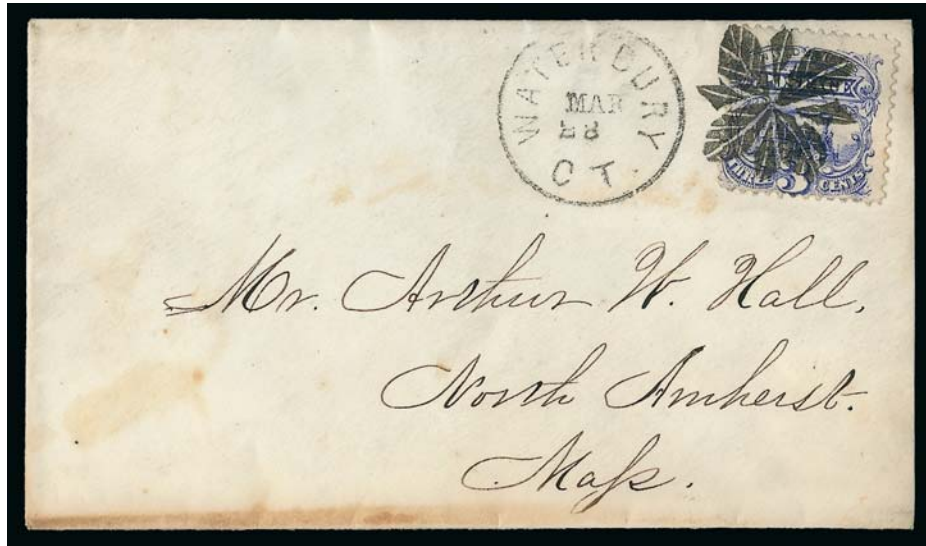 WATERBURY
MAR
28
CT.
THREE 3 CENTS
Mr. Arthur W. Hall,
North Amherst.
Maſs.